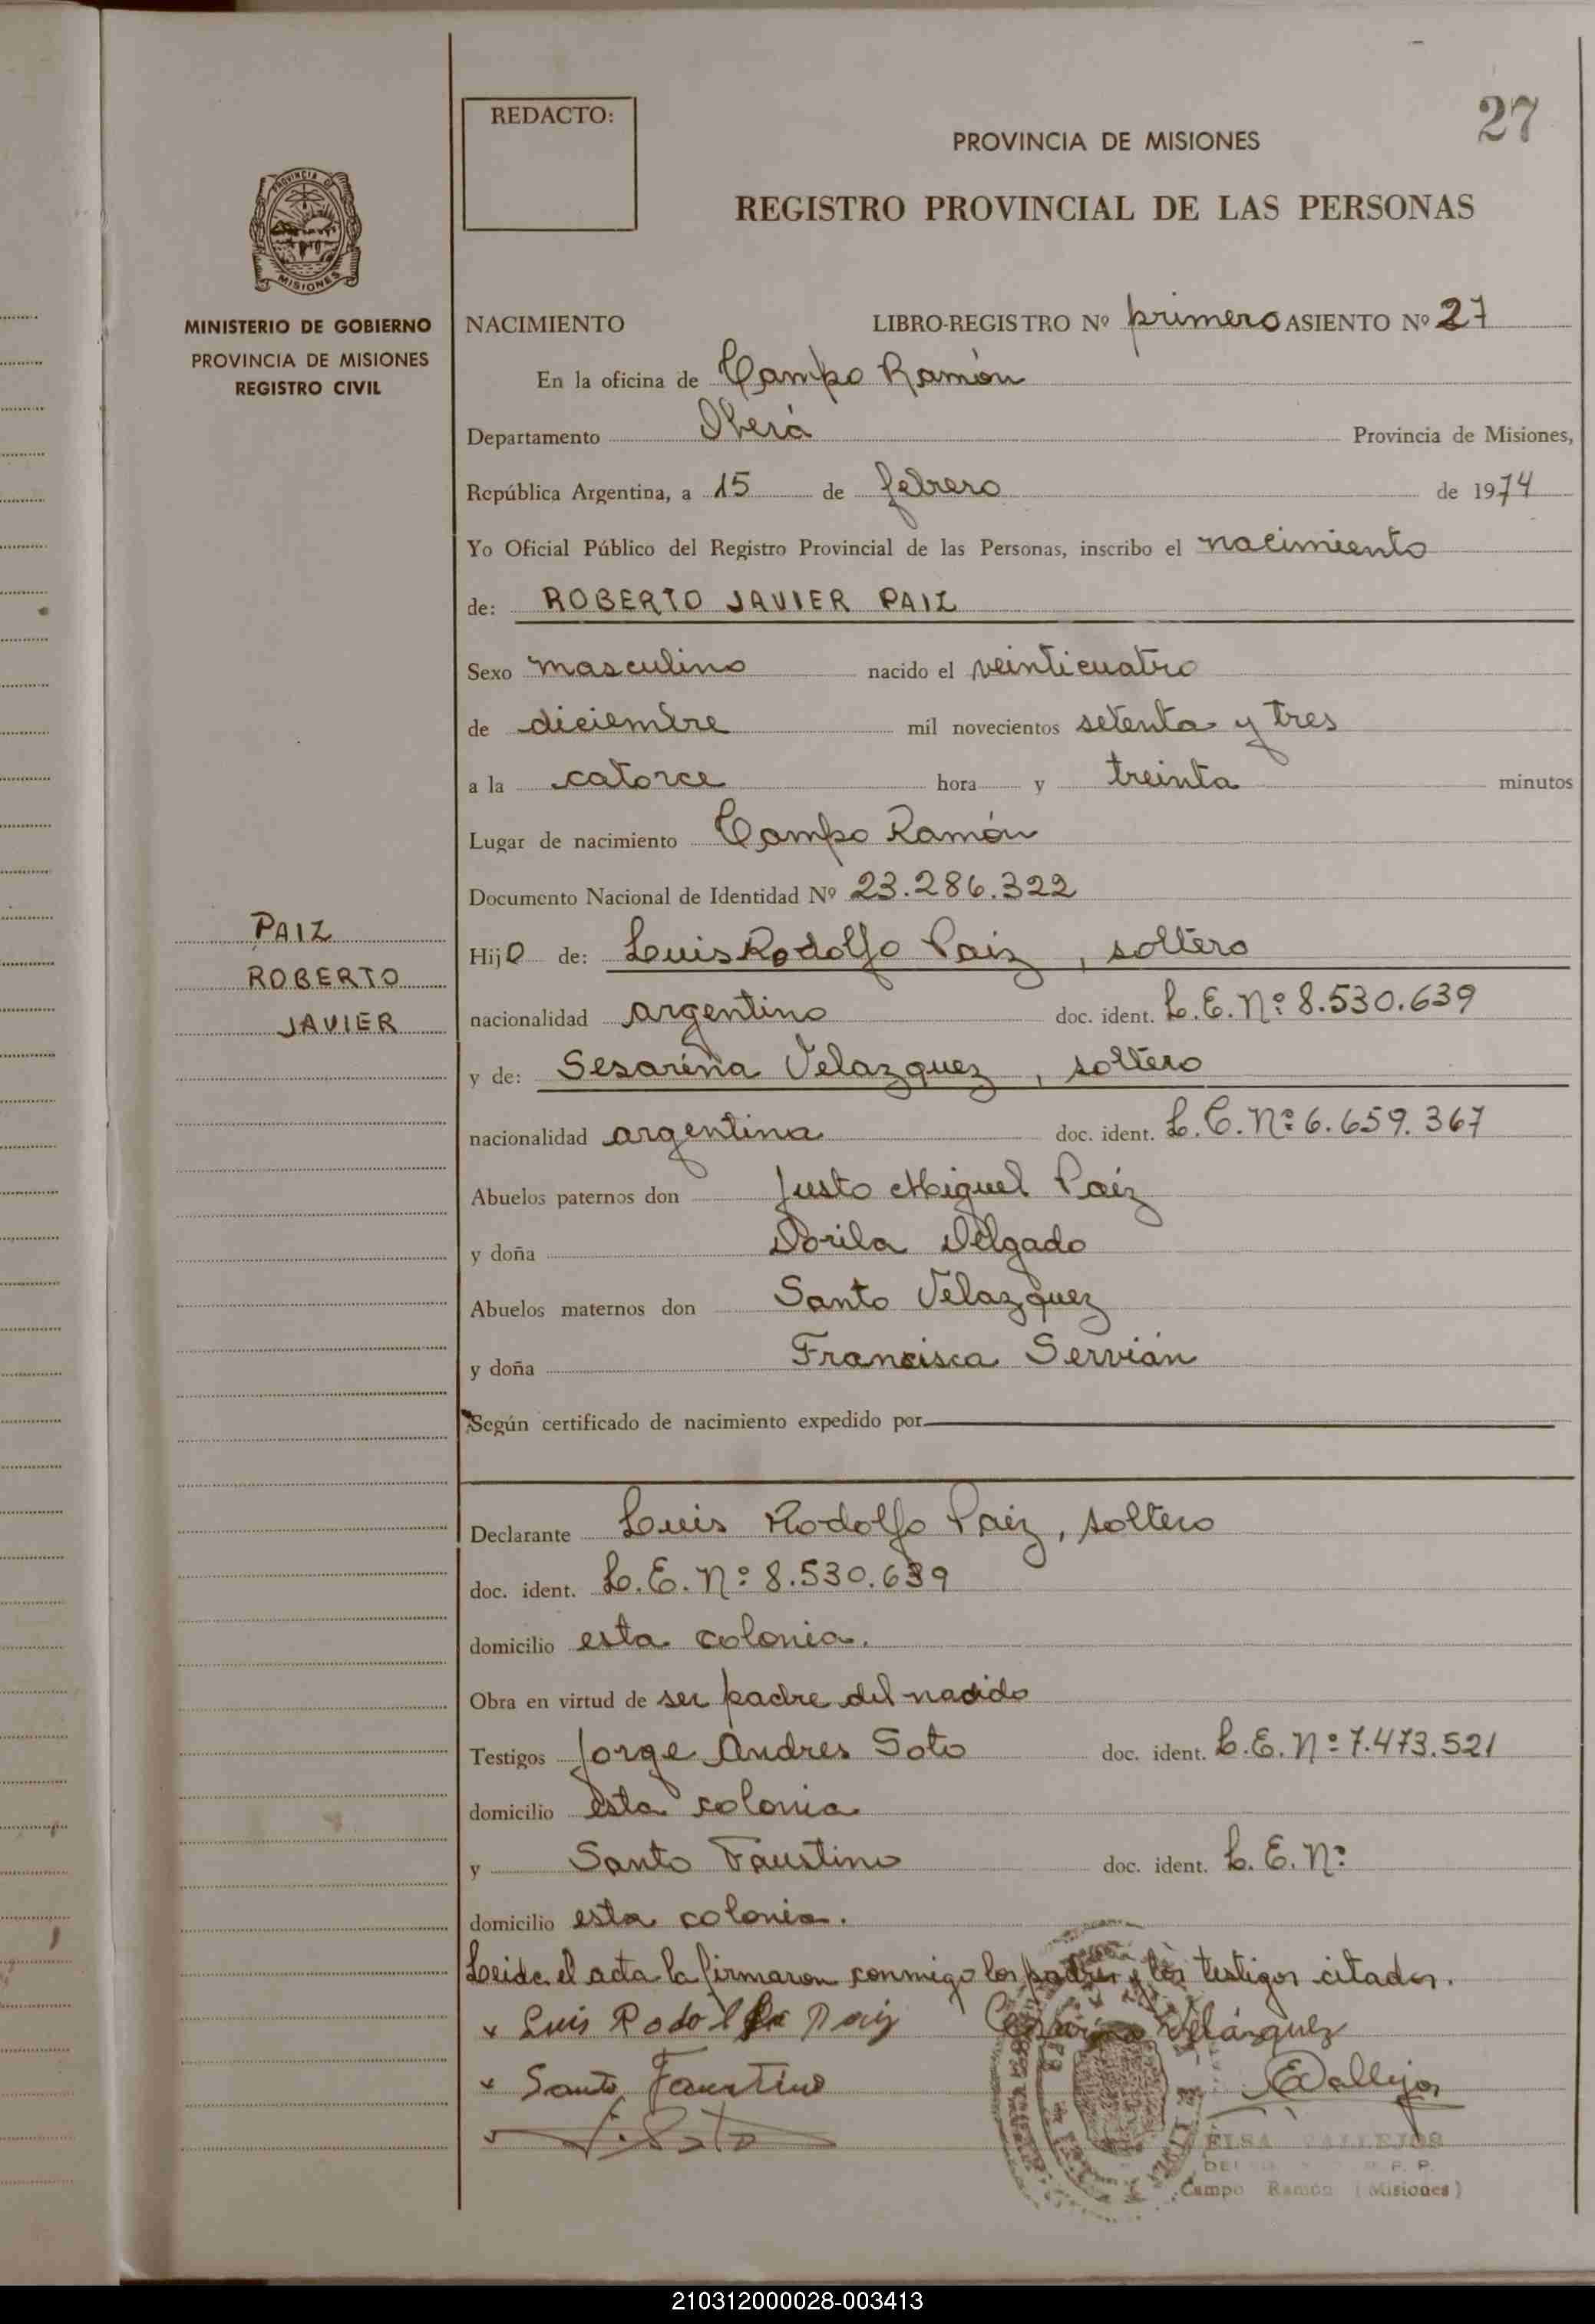 REDACTO:
27
PROVINCIA DE MISIONES
REGISTRO PROVINCIAL DE LAS PERSONAS
PROVINCIA DE
MISIONES
MINISTERIO DE GOBIERNO
PROVINCIA DE MISIONES
REGISTRO CIVIL
NACIMIENTO LIBRO-REGISTRO Nº primero ASIENTO Nº 27
En la oficina de Campo Ramón
Departamento Oberá Provincia de Misiones,
República Argentina, a 15 de febrero de 1974
Yo Oficial Público del Registro Provincial de las Personas, inscribo el nacimiento
de: ROBERTO JAVIER PAIZ
Sexo masculino nacido el veinticuatro
de diciembre mil novecientos setenta y tres
a la catorce hora y treinta minutos
Lugar de nacimiento Campo Ramón
Documento Nacional de Identidad Nº 23.286.322
PAIZ
ROBERTO
JAVIER
Hijo de: Luis Rodolfo Paiz, soltero
nacionalidad argentino doc. ident. L.E.Nº 8.530.639
y de: Sesarina Velazquez, soltero
nacionalidad argentina doc. ident. L.C.Nº 6.659.367
Abuelos paternos don Justo Miguel Paiz
y doña Dorila Delgado
Abuelos maternos don Santo Velazquez
y doña Francisca Servián
Según certificado de nacimiento expedido por
Declarante Luis Rodolfo Paiz, soltero
doc. ident. L.E.Nº 8.530.639
domicilio esta colonia.
Obra en virtud de ser padre del nacido
Testigos Jorge Andres Soto doc. ident. L.E.Nº 7.473.521
domicilio esta colonia
y Santo Faustino doc. ident. L.E.Nº
domicilio esta colonia.
Leida el acta la firmaron conmigo los padres y los testigos citados.
x Luis Rodolfo Paiz Cesarina Velázquez
x Santo Faustino EVallejos
J. Soto
ELSA VALLEJOS
R. P.
Campo Ramón (Misiones)
210312000028-003413